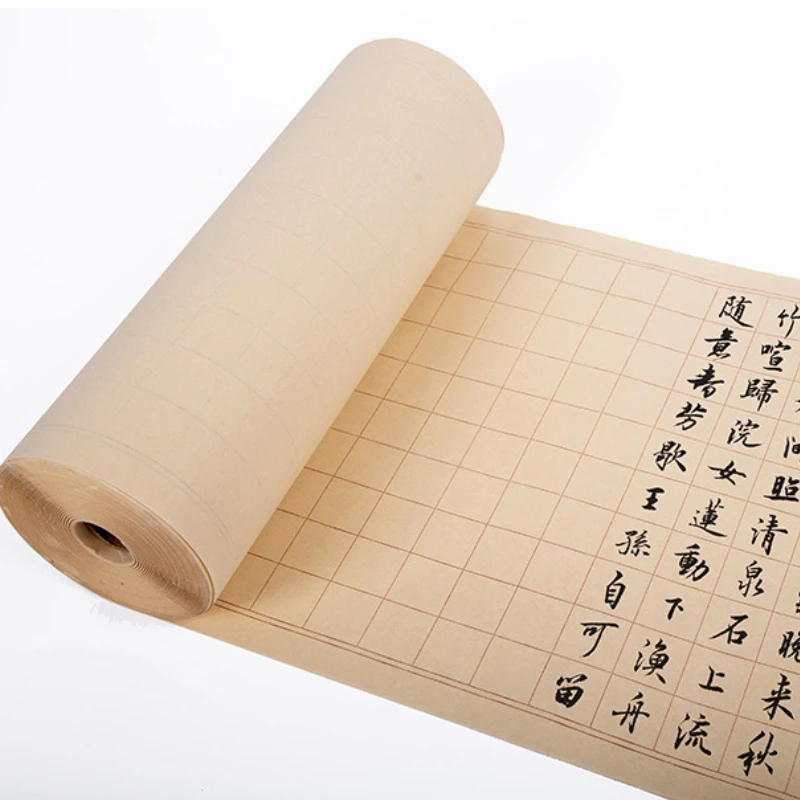 晚来秋
照清泉石上流
竹喧歸浣女蓮動下漁舟
随意春芳歇王孫自可留